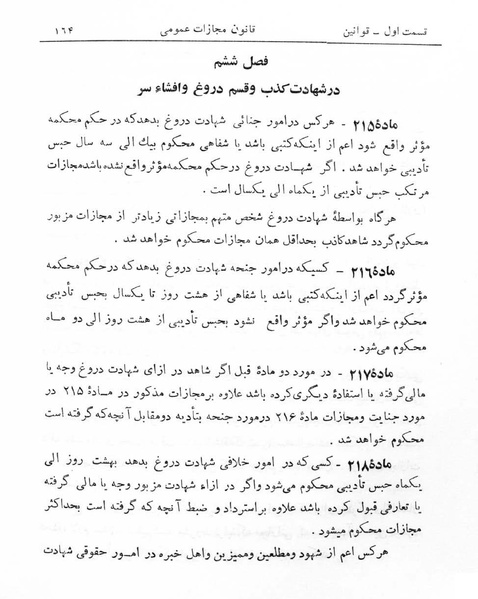 قسمت اول ـ قوانین قانون مجازات عمومی ۱۶۴
فصل ششم
در شهادت کذب و قسم دروغ و افشاء سر
مادهٔ ۲۱۵ - هرکس در امور جنائی شهادت دروغ بدهد که در حکم محکمه
مؤثر واقع شود اعم از اینکه کتبی باشد یا شفاهی محکوم بیك الی سه سال حبس
تأدیبی خواهد شد . اگر شهادت دروغ در حکم محکمه مؤثر واقع نشده باشد مجازات
مرتکب حبس تأدیبی از یکماه الی یکسال است .
هرگاه بواسطهٔ شهادت دروغ شخص متهم بمجازاتی زیادتر از مجازات مزبور
محکوم گردد شاهد کاذب بحداقل همان مجازات محکوم خواهد شد .
مادهٔ ۲۱۶ - کسیکه در امور جنحه شهادت دروغ بدهد که در حکم محکمه
مؤثر گردد اعم از اینکه کتبی باشد یا شفاهی از هشت روز تا یکسال بحبس تأدیبی
محکوم خواهد شد واگر مؤثر واقع نشود بحبس تأدیبی از هشت روز الی دو ماه
محکوم می‌شود .
مادهٔ ۲۱۷ - در مورد دو مادهٔ قبل اگر شاهد در ازای شهادت دروغ وجه یا
مالی گرفته یا استفادهٔ دیگری کرده باشد علاوه بر مجازات مذکور در مادهٔ ۲۱۵ در
مورد جنایت ومجازات مادهٔ ۲۱۶ در مورد جنحه بتأدیه دو مقابل آنچه که گرفته است
محکوم خواهد شد .
مادهٔ ۲۱۸ - کسی که در امور خلافی شهادت دروغ بدهد بهشت روز الی
یکماه حبس تأدیبی محکوم می‌شود واگر در ازاء شهادت مزبور وجه یا مالی گرفته
یا تعارفی قبول کرده باشد علاوه براسترداد و ضبط آنچه که گرفته است بحداکثر
مجازات محکوم میشود .
هرکس اعم از شهود ومطلعین وممیزین واهل خبره در امور حقوقی شهادت